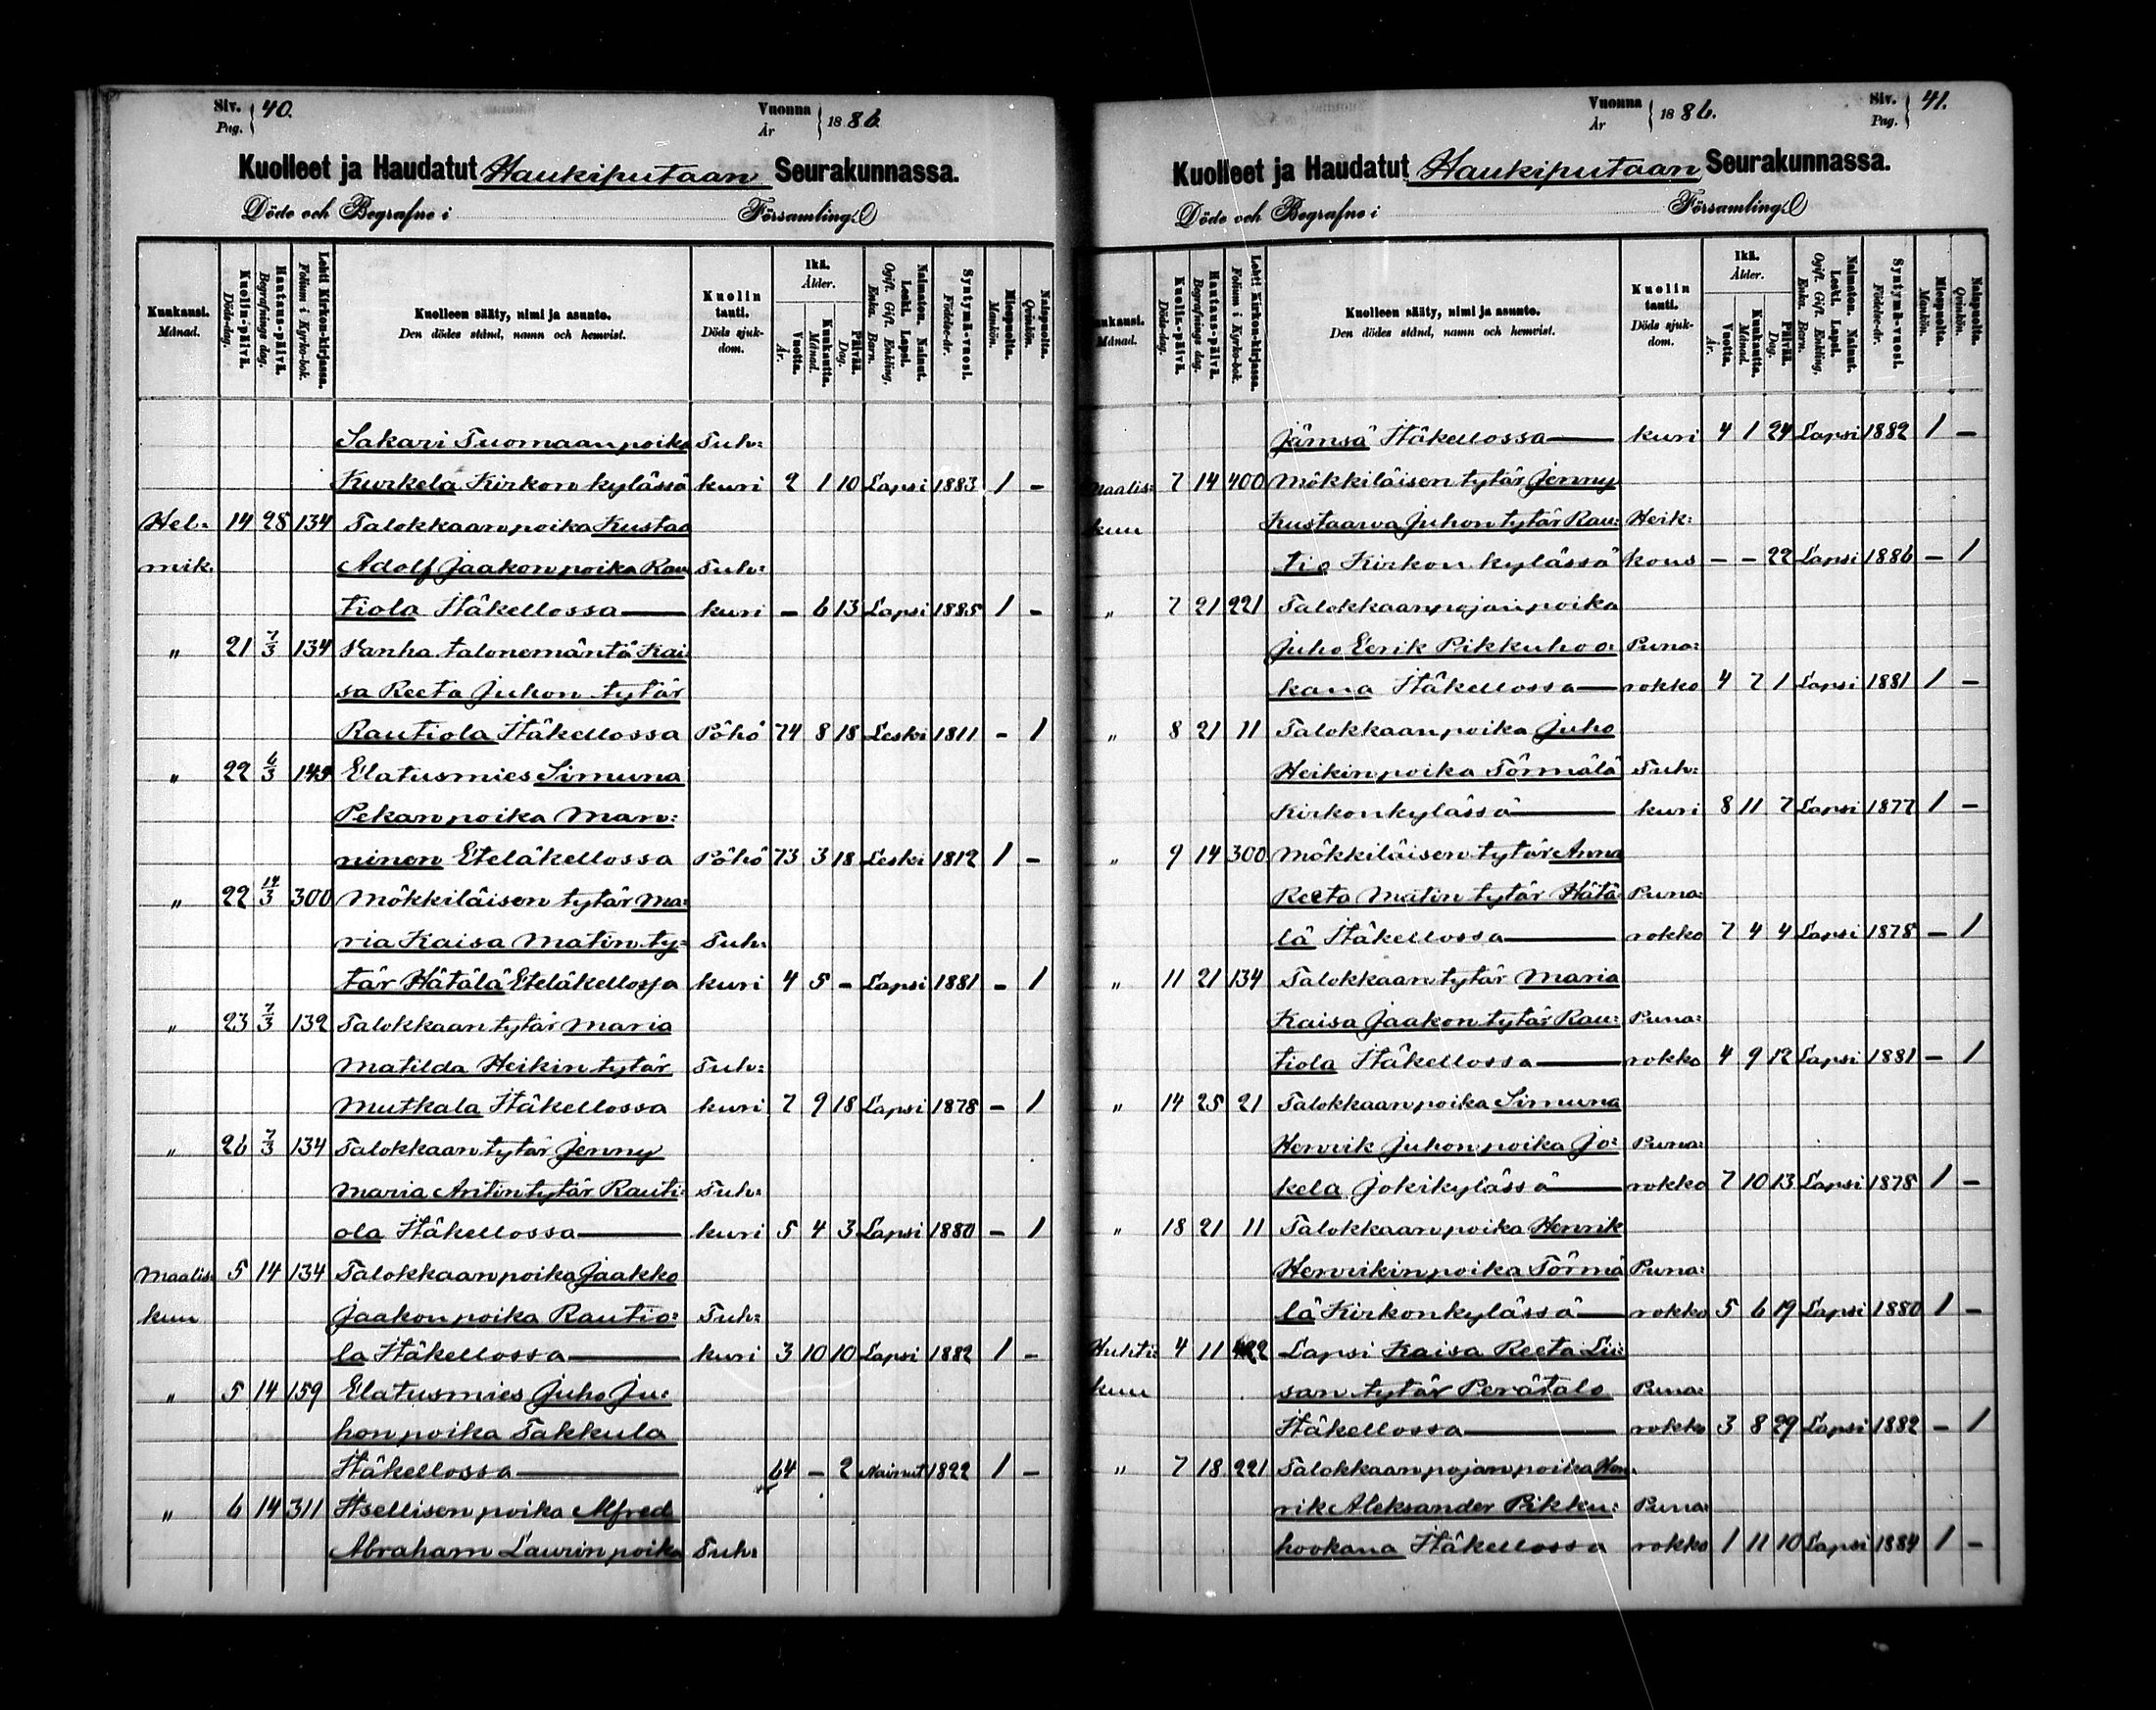 Siv. Pag. 40. Vuonna År 1886.
Kuolleet ja Haudatut Haukiputaan Seurakunnassa.
Döde och Begrafne i Församling
Kuukausi. Månad. Kuolin-päivä. Döds-dag. Hautaus-päivä. Begrafnings dag. Lehti Kirkon-kirjassa. Folium i Kyrko-bok. Kuolleen sääty, nimi ja asunto. Den dödes stånd, namn och hemvist. Kuolin tauti. Döds sjukdom. Ikä. Ålder. Vuotta. År. Kuukautta. Månad. Päivää. Dag. Naimaton. Nainut. Leski. Lapsi. Ogift. Gift. Enkling, Enka. Barn. Syntymä-vuosi. Födelse-år. Miespuolta. Mankön. Naispuolta. Qvinkön.
Sakari Tuomaan poika Tuh=
Kurkela Kirkon kylässä kuri 2 1 10 Lapsi 1883 1 -
Hel= 14 28 134 Talokkaan poika Kustaa
mik. Adolf Jaakon poika Rau Tuh=
tiola Itäkellossa kuri - 6 13 Lapsi 1885 1 -
" 21 7/3 134 Vanha talonemäntä Kai=
sa Reeta Juhon tytär
Rautiola Itäkellossa Pöhö 74 8 18 Leski 1811 - 1
" 22 6/3 149 Elatusmies Simuna
Pekan poika Man=
ninen Eteläkellossa Pöhö 73 3 18 Leski 1812 1 -
" 22 14/3 300 Mökkiläisen tytär Ma=
ria Kaisa Matin ty= Tuh=
tär Hätälä Eteläkellossa kuri 4 5 - Lapsi 1881 - 1
" 23 7/3 132 Talokkaan tytär Maria
Matilda Heikin tytär Tuh=
Mutkala Itäkellossa kuri 7 9 18 Lapsi 1878 - 1
" 26 7/3 134 Talokkaan tytär Jenny
Maria Antin tytär Rauti= Tuh=
ola Itäkellossa kuri 5 4 3 Lapsi 1880 - 1
Maalis= 5 14 134 Talokkaan poika Jaakko
kuu Jaakon poika Rautio= Tuh=
la Itäkellossa kuri 3 10 10 Lapsi 1882 1 -
" 5 14 159 Elatusmies Juho Ju=
hon poika Takkula
Itäkellossa 64 - 2 Nainut 1822 1 -
" 6 14 311 Itsellisen poika Alfred
Abraham Laurin poika Tuh=
Vuonna År 1886. Siv. Pag. 41.
Kuolleet ja Haudatut Haukiputaan Seurakunnassa.
Döde och Begrafne i Församling
Kuukausi. Månad. Kuolin-päivä. Döds-dag. Hautaus-päivä. Begrafnings dag. Lehti Kirkon-kirjassa. Folium i Kyrko-bok. Kuolleen sääty, nimi ja asunto. Den dödes stånd, namn och hemvist. Kuolin tauti. Döds sjukdom. Ikä. Ålder. Vuotta. År. Kuukautta. Månad. Päivää. Dag. Naimaton. Nainut. Leski. Lapsi. Ogift. Gift. Enkling, Enka. Barn. Syntymä-vuosi. Födelse-år. Miespuolta. Mankön. Naispuolta. Qvinkön.
Jämsä Itäkellossa kuri 4 1 24 Lapsi 1882 1 -
Maalis= 7 14 400 Mökkiläisen tytär Jenny
kuu Kustaawa Juhon tytär Rau= Heik=
tio Kirkon kylässä kous - - 22 Lapsi 1886 - 1
" 7 21 221 Talokkaan pojan poika
Juho Eerik Pikkuhoo= Puna=
kana Itäkellossa rokko 4 7 1 Lapsi 1881 1 -
" 8 21 11 Talokkaan poika Juho
Heikin poika Törmälä Tuh=
Kirkonkylässä kuri 8 11 7 Lapsi 1877 1 -
" 9 14 300 Mökkiläisen tytär Anna
Reeta Matin tytär Hätä= Puna=
lä Itäkellossa rokko 7 4 4 Lapsi 1878 - 1
" 11 21 134 Talokkaan tytär Maria
Kaisa Jaakon tytär Rau= Puna=
tiola Itäkellossa rokko 4 9 12 Lapsi 1881 - 1
" 14 25 21 Talokkaan poika Simuna
Henrik Juhon poika Jo= Puna=
kela Jokikylässä rokko 7 10 13 Lapsi 1878 1 -
" 18 21 11 Talokkaan poika Henrik
Henrikin poika Törmä Puna=
lä Kirkonkylässä rokko 5 6 19 Lapsi 1880 1 -
Huhti= 4 11 422 Lapsi Kaisa Reeta Lii=
kuu san tytär Perätalo Puna=
Itäkellossa rokko 3 8 29 Lapsi 1882 - 1
" 7 18 221 Talokkaan pojan poika Hen=
rik Aleksander Pikku= Puna=
hookana Itäkellossa rokko 1 11 10 Lapsi 1884 1 -